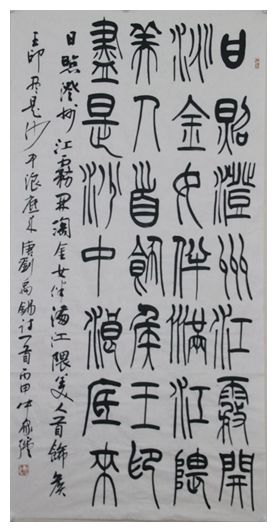 日照澄州江霧開
淘金女伴滿江隈
美人首飾侯王印
盡是沙中浪底來
日照澄州江霧開淘金女伴滿江隈美人首飾侯
王印尽是沙中浪底来唐劉禹錫詩一首丙申